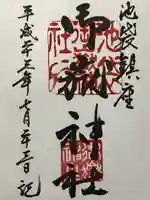 池袋鎮座
御嶽神社
平成廿三年七月廿三日記